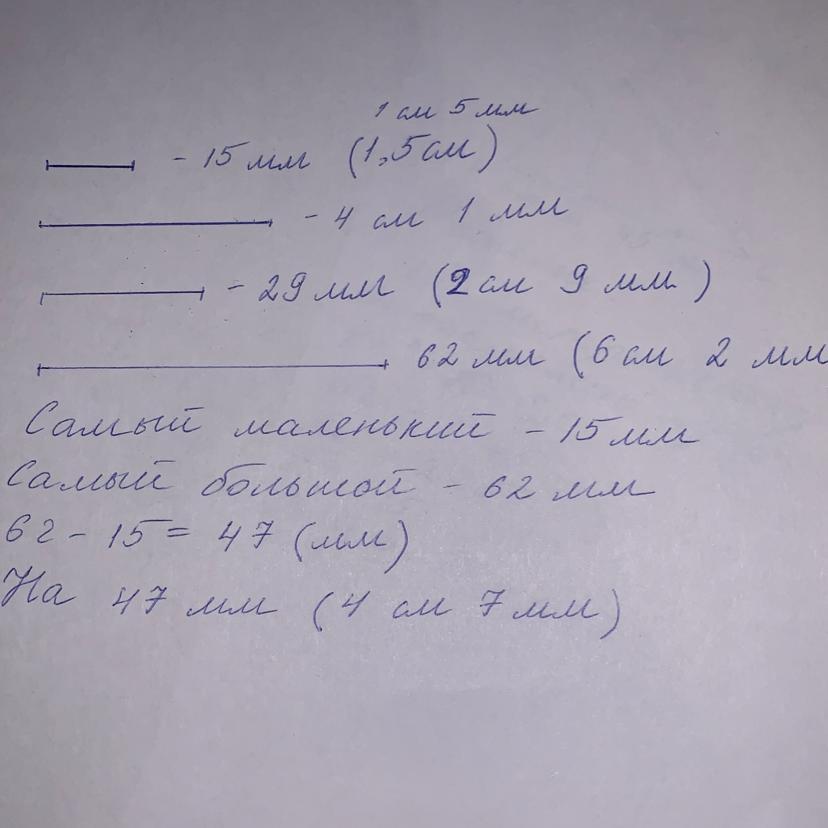 1 см 5 мм
- 15 мм (1,5 см)
- 4 см 1 мм
- 29 мм (2 см 9 мм)
62 мм (6 см 2 мм
Самый маленький - 15 мм
Самый большой - 62 мм
62 - 15 = 47 (мм)
На 47 мм (4 см 7 мм)